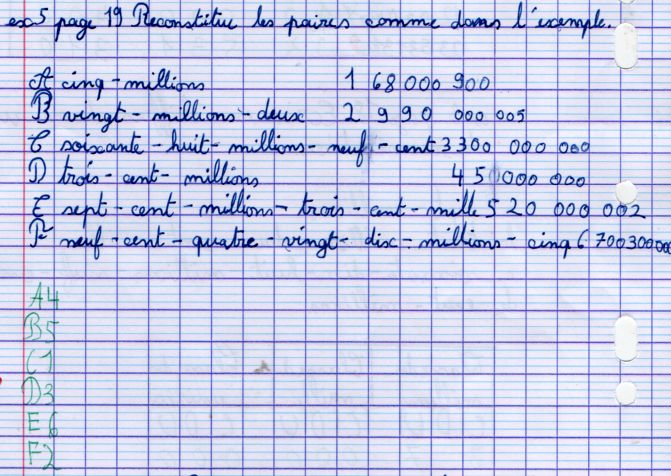 ex 5 page 19 Reconstitue les paires comme dans l'exemple.
A cinq-millions 1 68 000 900
B vingt-millions-deux 2 990 000 005
C soixante-huit-millions-neuf-cent 3 300 000 000
D trois-cent-millions 4 5 000 000
E sept-cent-millions-trois-cent-mille 5 20 000 002
F neuf-cent-quatre-vingt-dix-millions-cinq 6 700 300 000
A4
B5
C1
D3
E6
F2